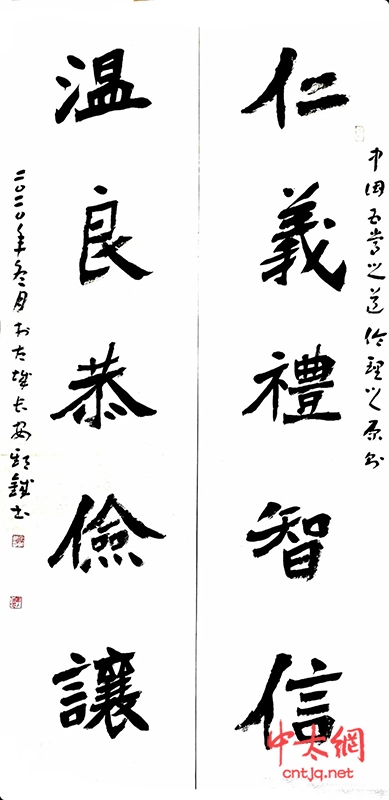 中国五常之道伦理之原则
仁義禮智信
温良恭儉讓
二〇二〇年冬月於古城長安
中太網
cntjq.net